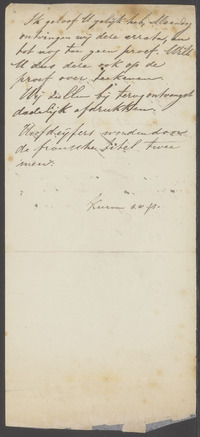 Ik geloof U gelijk hebt, Maandag
ontvingen wij deze errata, en
tot nog toe geen proef. Wilt
U dus deze ook op de
proef over teekenen.
Wij zullen bij terugontvangst
dadelijk afdrukken.
Hoofdcijfers worden door
de fransche titel twee
meer.